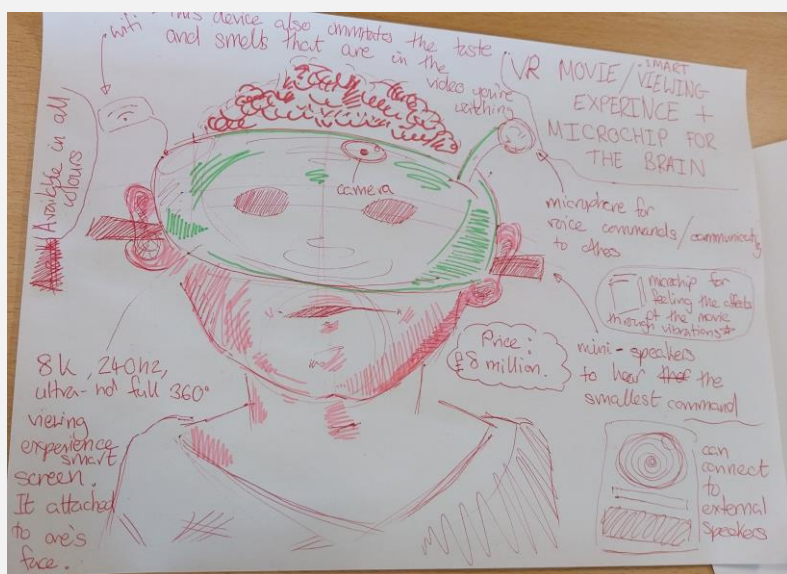 wifi - This device also immitates the taste
and smells that are in the
video you're
watching
VR MOVIE/SMART VIEWING
EXPERINCE +
MICROCHIP FOR
THE BRAIN
Available in all
colours
camera
microphone for
voice commands/communicating
to others
microchip for
feeling the effects
of the movie
through vibrations
Price:
£8 million.
mini-speakers
to hear the
smallest command
8K, 240hz,
ultra-hd full 360°
viewing
experience
smart
screen.
It attached
to one's
face.
can
connect
to
external
speakers